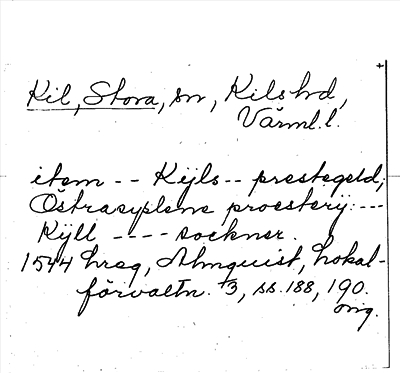 Kil, Stora, sn, Kils hd,
Värml. l.
item -- Kijls -- prestegeld;
Östrasyslene proesterij: ---
Kijll ---- sockner.
1544 hreg, Almquist, Lokal-
förvaltn. 3, ss. 188, 190.
orig.